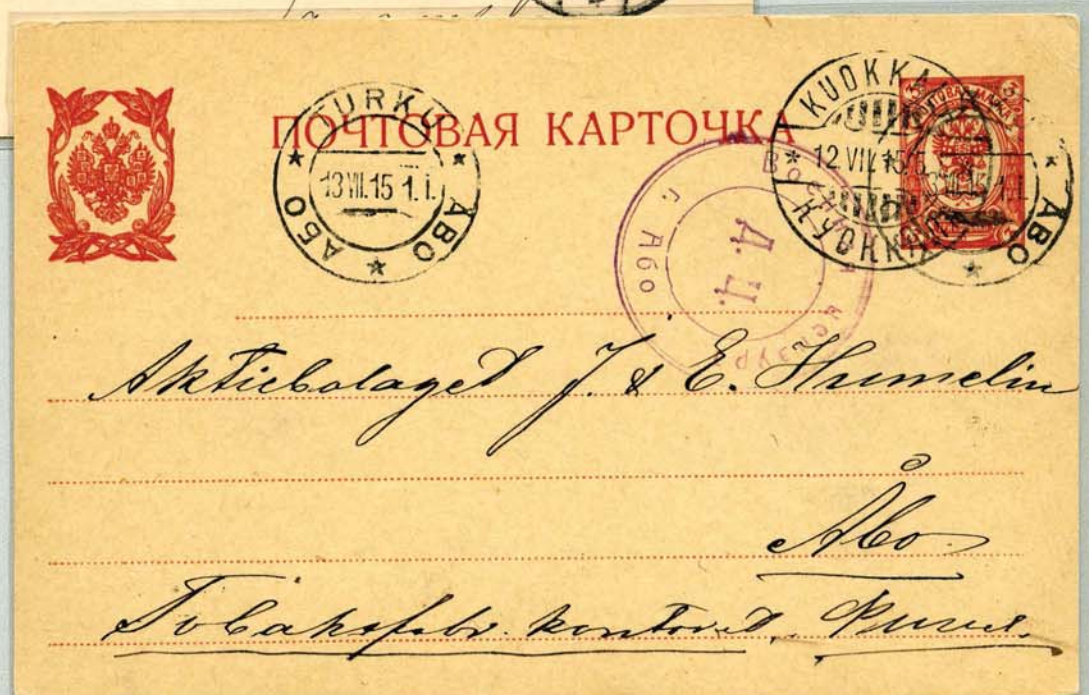 ПОЧТОВАЯ КАРТОЧКА
TURKU
13.VII.15 1.i.
АБО * ÅBO
KUOKKALA
12.VII.15
КУОККАЛА
ÅBO
г. Або
Д.Ц.
Aktiebolaget J. & E. Humelin
Åbo
Tobaksfabr. kontoret,